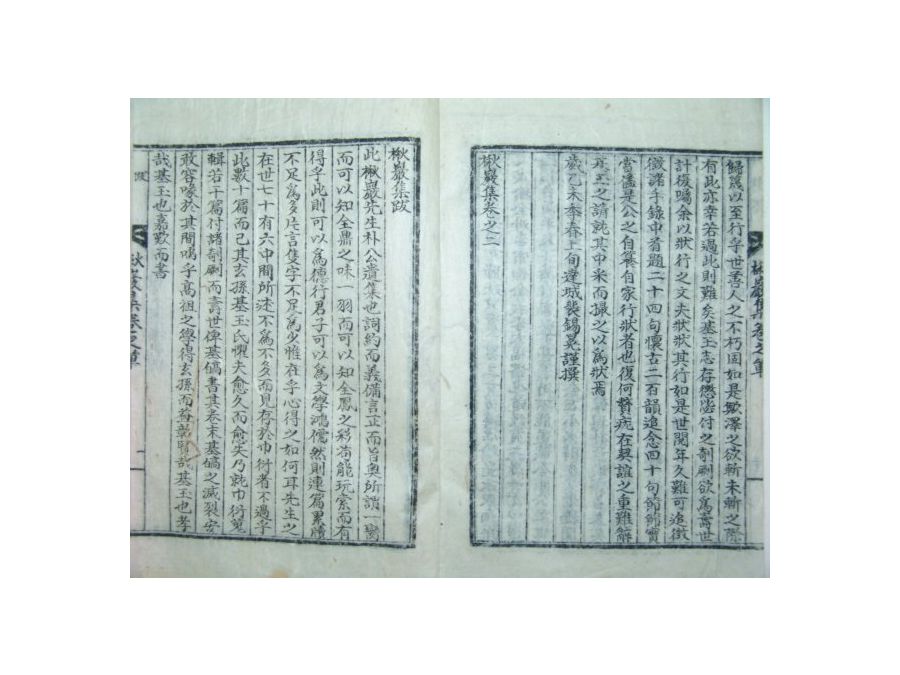 歸蔿以至行孚世善人之不朽固如是歟澤之欲斬未斬之際
有此亦幸若過此則難矣基玉志存懲毖付之剞劂欲爲壽世
計復囑余以狀行之文夫狀狀其行如是世閱年久難可追徵
徵諸手錄中首題二十四句懷古二百韻追念四十句節節實
當盡是公之自纂自家行狀者也復何贅疣在契誼之重難解
基玉之請就其中采而撮之以爲狀焉
歲乙未季春上旬達城裵錫冕謹撰
楸巖集卷之二
楸巖集跋
此楸巖先生朴公遺集也詞約而義備言正而旨奧所謂一臠
而可以知全鼎之味一羽而可以知全鳳之彩者能玩索而有
得乎此則可以爲德行君子可以爲文學鴻儒然則連篇累牘
不足爲多片言隻字不足爲少惟在乎心得之如何耳先生之
在世七十有六中間所述不爲不多而見存於巾衍者不過乎
此數十篇而已其玄孫基玉氏懼夫愈久而愈失乃就巾衍蒐
輯若干篇付諸剞劂而壽世俾基鎬書其卷末基鎬之滅裂安
敢容喙於其間噫乎高祖之學得玄孫而益彰賢哉基玉也孝
哉基玉也嘉歎而書
跋
楸巖集卷之